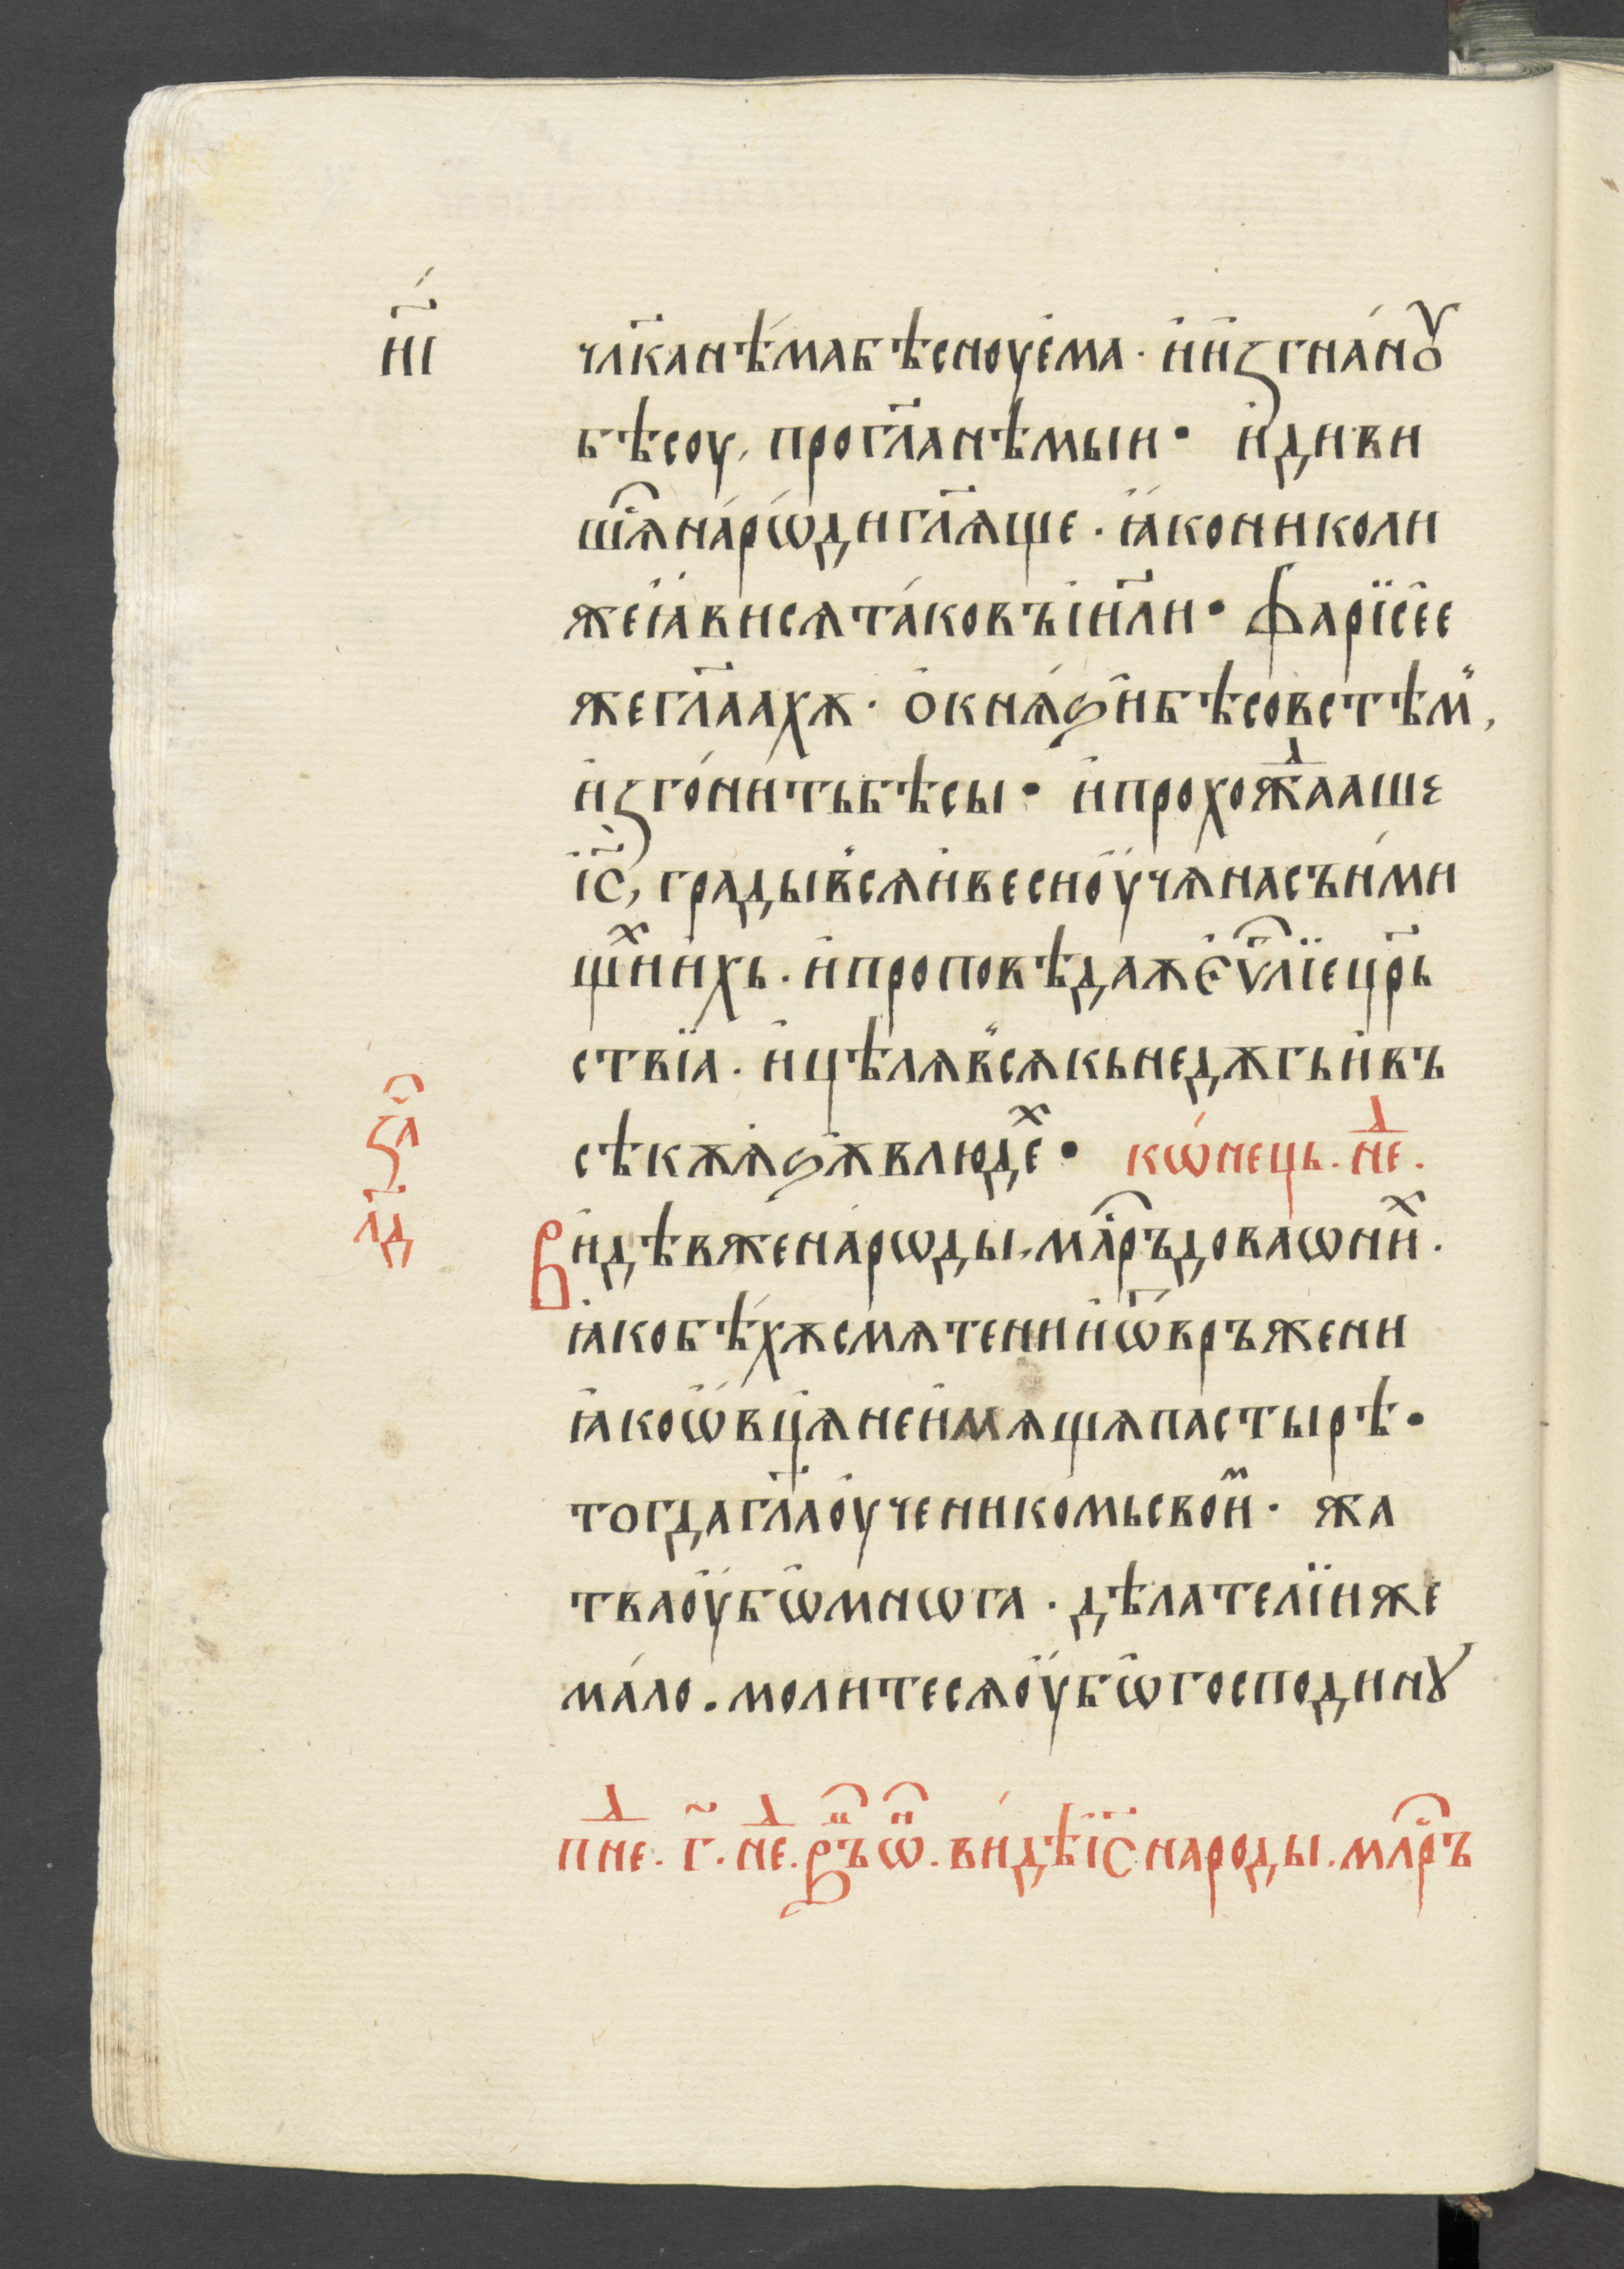 н҃і
чл҃ка нѣ́ма бѣсноуе́ма · и҆ и҆ꙁгна́нꙋ
бѣсоу, прогл҃а нѣмыи • и҆ диви
шїѧ̑ наро́ѡди гл҃ѧще · ꙗ҆ко николи
же ꙗ҆висѧ та́ковъ і҆и҃ли • фарїсе҆е
же гл҃аахѫ · ѻ҆ кнѧ́ѕи бѣсовстѣмⷨ,
и҆ꙁго́нить бѣсы • и҆ прохожⷣааше
і҆с҃, грады всѧ и҆ веси ѹ҆чѧ на съни́ми
щⷯи ихь · и҆ проповѣдаѫ є҆ѵ҃лїе цр҃ь
ствїа · и҆ цѣлѧ всѧкь недѫгь и҆ въ
сѣкѫ ѧ҆ѕѫ в людеⷯ • кѡ́нець · неⷣ ·
за҃ч
лд
Видѣв же наро́ѡды, млⷭ҇ръдова ѡ ниⷯ ·
ꙗ҆ко бѣ́хѫ смѧтени и҆ ѿвръжени
ꙗ҆ко ѻ҆вцѧ не и҆мѧщѧ пастырѣ •
тогда гл҃а ѹ҆ченикомь своиⷨ · жѧ
тва ѹ҆бѡ мнѡга · дѣлателїи же
ма́ло . молитесѧ ѹ҆бѡ господинꙋ
пⷣне · г҃ · неⷣ · врⷨъ ѡⷩ҇ · ви́дѣ і҆с҃ народы · млⷭ҇ръ